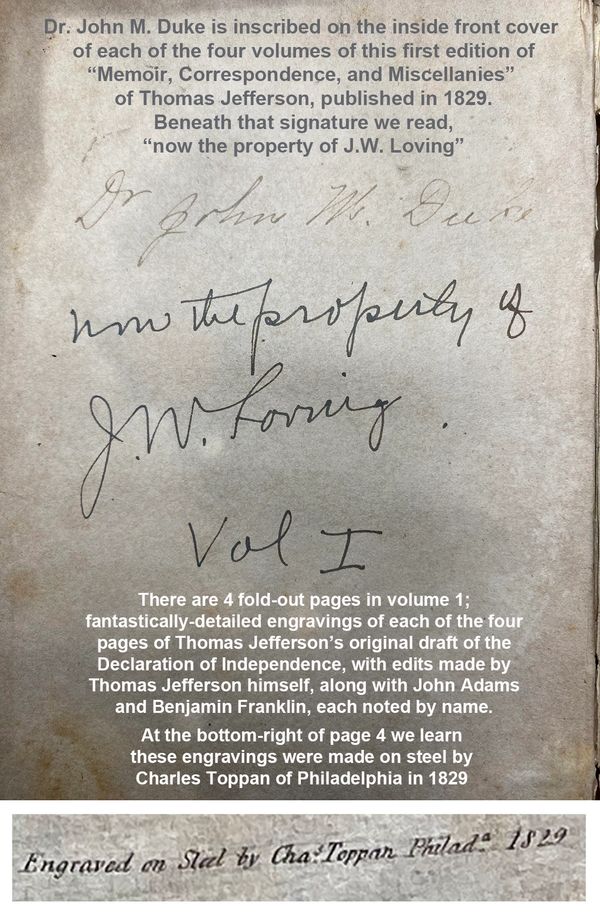 Dr. John M. Duke is inscribed on the inside front cover
of each of the four volumes of this first edition of
“Memoir, Correspondence, and Miscellanies”
of Thomas Jefferson, published in 1829.
Beneath that signature we read,
“now the property of J.W. Loving”
Dr John M. Duke
now the property of
J.W. Loving.
Vol I
There are 4 fold-out pages in volume 1;
fantastically-detailed engravings of each of the four
pages of Thomas Jefferson’s original draft of the
Declaration of Independence, with edits made by
Thomas Jefferson himself, along with John Adams
and Benjamin Franklin, each noted by name.
At the bottom-right of page 4 we learn
these engravings were made on steel by
Charles Toppan of Philadelphia in 1829
Engraved on Steel by Chas. Toppan Philada. 1829